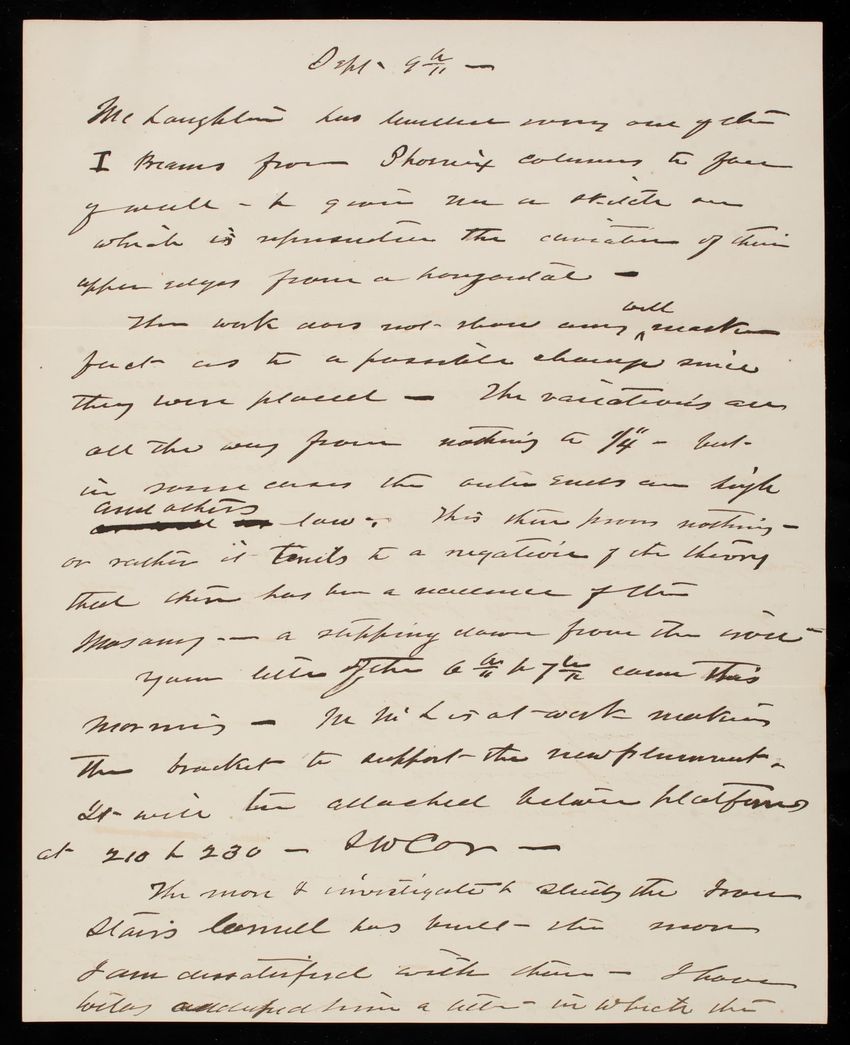 Sept. 9th —
McLaughlin has levelled every one of the
I Beams from Phoenix columns to face
of wall - he gives me a sketch on
which is represented the deviation of their
upper edges from a horizontal —
The work does not show any well marked
fact as to a possible change since
they were placed — The variations are
all the way from nothing to 1/4" - but
in some cases the outer ends are high
and others low. This then proves nothing -
or rather it tends to a negation of the theory
that there has been a
Masonry — a stepping down from the
Your letter of the 6th & 7th came this
Morning — Mr McL is at work making
the bracket to support the new
It will be attached between platforms
at 210 & 230 — S W Cor —
The more I investigate & study the Iron
Stairs Cornell has built - the more
I am dissatisfied with them — I have
today addressed him a letter in which the